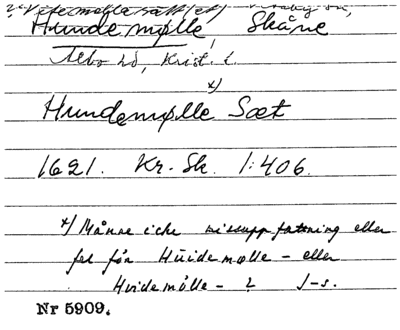 Hundemølle, Skåne
Albo hd, Krist. l.
x)
Hundemølle Sæt
1621. Kr. Sk. 1:406.
x) Månne icke missuppfattning eller
fel för Hüidemølle - eller
Hvidemölle - ? J-s.
Nr 5909.